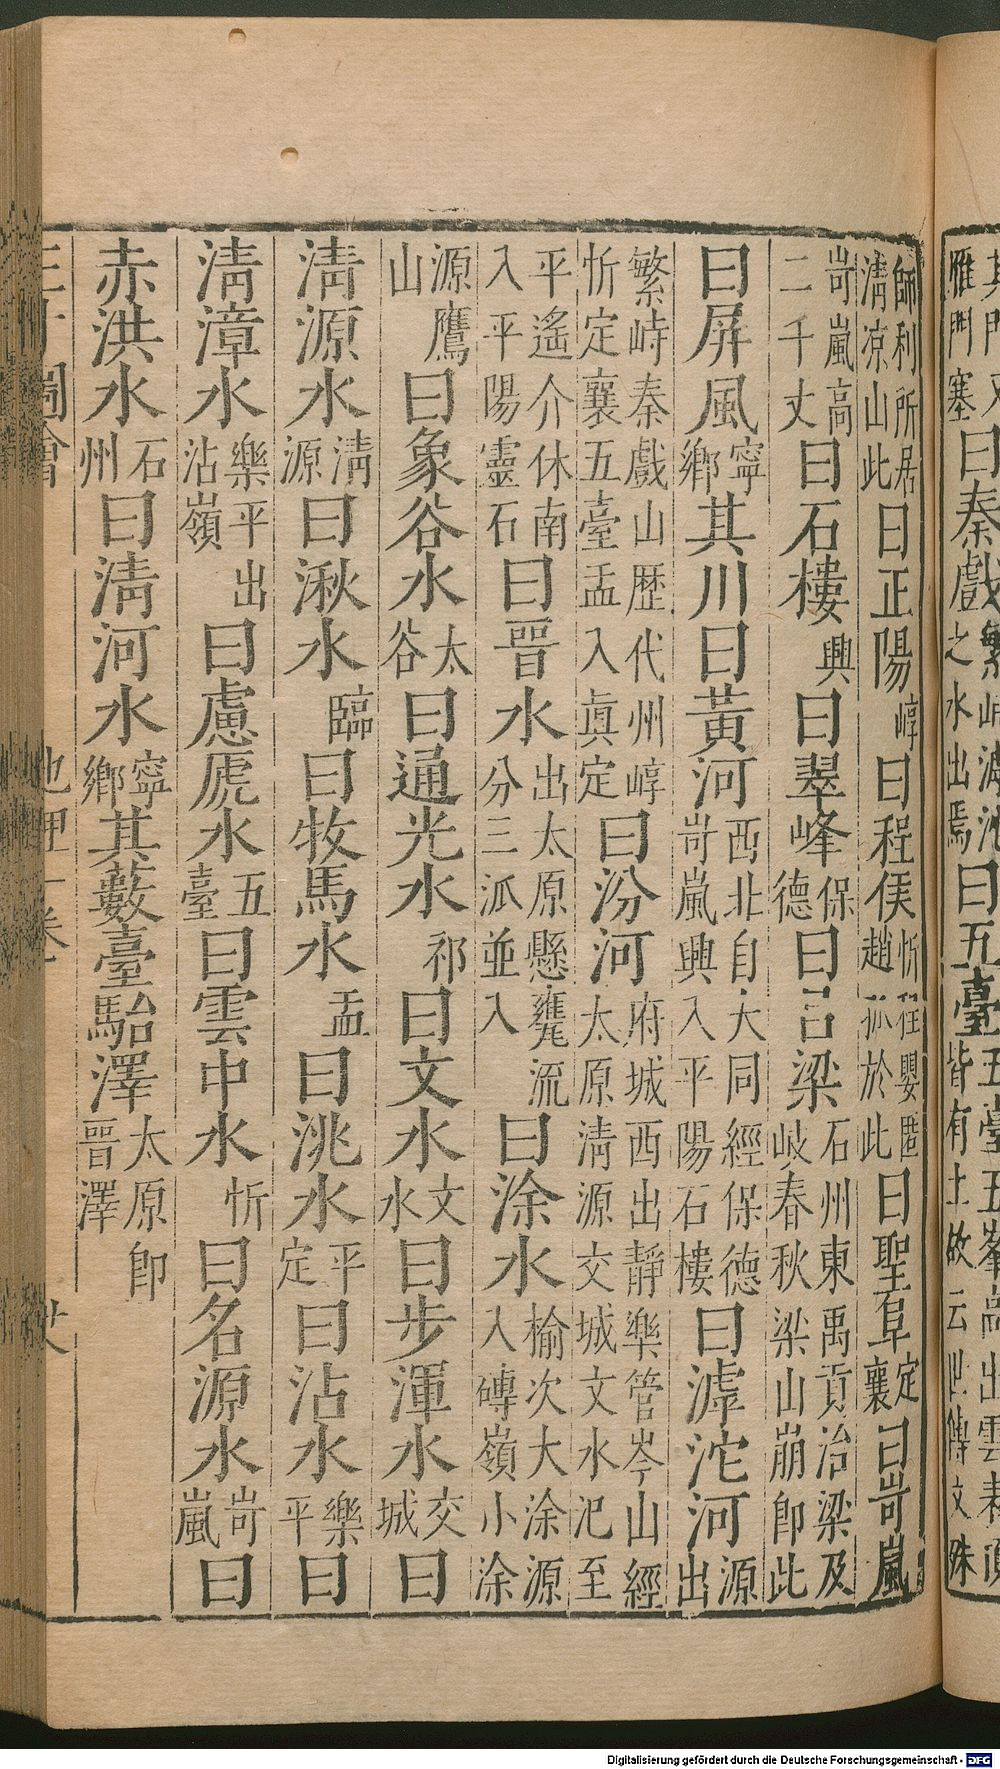 雁門塞曰秦戲繁峙滹沱之水出焉曰五臺五臺五峯高出雲表頂皆有土故云世傳文殊
師利所居清凉山此曰正陽崞曰程侯忻程嬰匿趙孤於此曰聖阜定襄曰岢嵐
岢嵐高二千丈曰石樓興曰翠峰保德曰呂梁石州東禹貢治梁及岐春秋梁山崩即此
曰屏風寧鄉其川曰黃河西北自大同經保德岢嵐興入平陽石樓曰滹沱河源出
繁峙秦戲山歷代州崞忻定襄五臺盂入眞定曰汾河府城西出靜樂管岑山經太原清源交城文水汜至
平遙介休南入平陽靈石曰晉水出太原懸甕流分三派並入曰涂水榆次大涂源入磚嶺小涂
源鷹山曰象谷水太谷曰通光水祁曰文水文水曰步渾水交城曰
清源水清源曰湫水臨曰牧馬水盂曰洮水平定曰沾水樂平曰
清漳水樂平出沾嶺曰慮虒水五臺曰雲中水忻曰名源水岢嵐曰
赤洪水石州曰清河水寧鄉其藪臺駘澤太原即晉澤
Digitalisierung gefördert durch die Deutsche Forschungsgemeinschaft - DFG